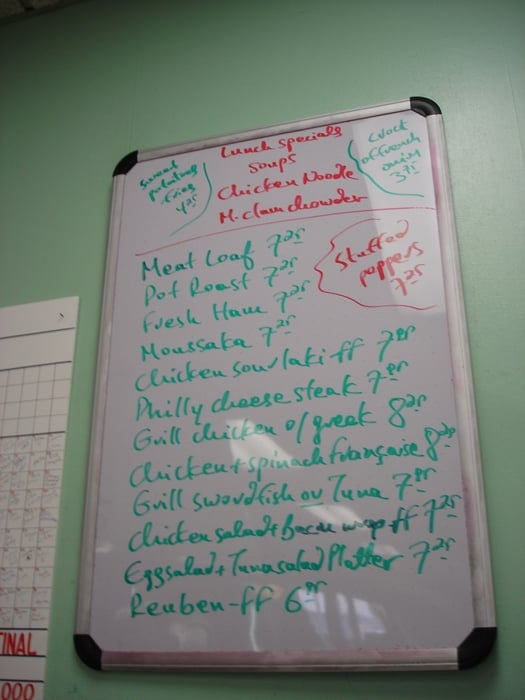 Lunch specials
Soups
Chicken Noodle
M. clam chowder
sweet
potatoes
fries
4.25
Crock
of french
onion
3.75
Stuffed
peppers
7.25
Meat Loaf 7.25
Pot Roast 7.25
Fresh Ham 7.25
Moussaka 7.25
Chicken souvlaki ff
Philly cheese steak
Grill chicken o/ greek 8.25
Chicken + spinach française 8.25
Grill swordfish or Tuna
Chicken salad + Bacon wrap ff 7.25
Eggsalad + Tunasalad Platter 7.25
Reuben - ff
INAL
000